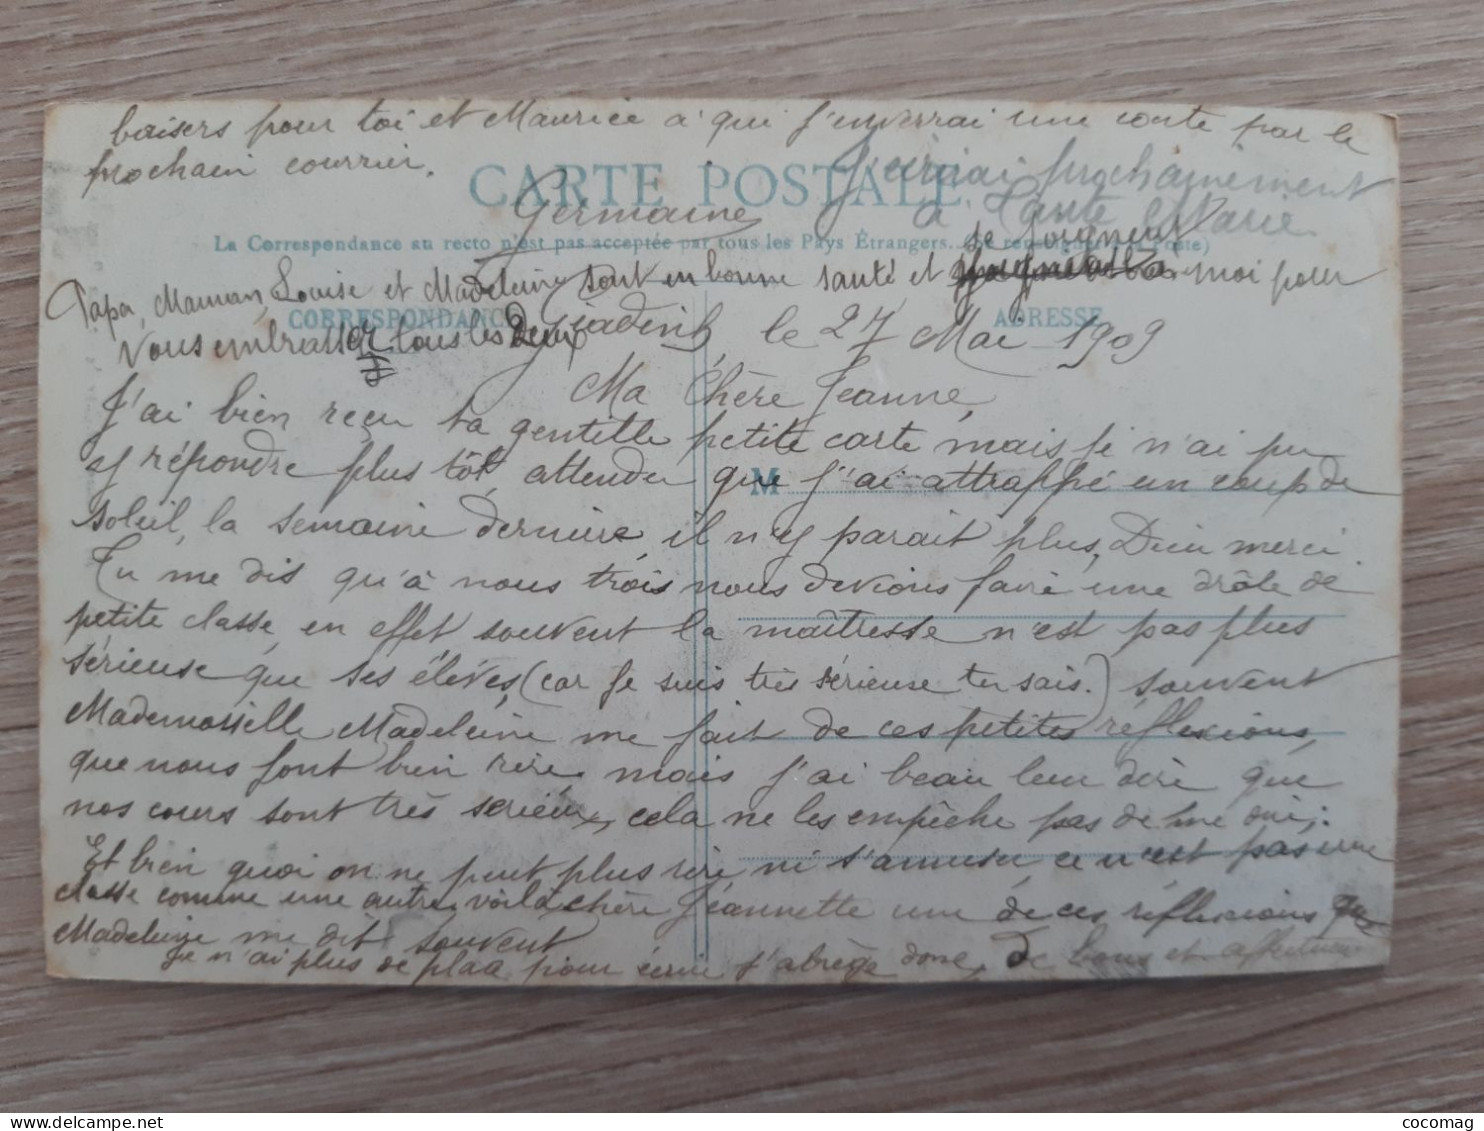 baisers pour toi et Maurice à qui j'enverrai une carte par le
prochain courrier.
CARTE POSTALE
J'écrirai prochainement
à Tante Marie.
Germaine
La Correspondance au recto n'est pas acceptée par tous les Pays Étrangers. (Se renseigner à la Poste)
se joignent
Papa, Maman, Louise et Madeleine sont en bonne santé et à moi pour
vous embrasser tous les deux
CORRESPONDANCE
ADRESSE
le 27 Mai 1909
Ma Chère Jeanne,
J'ai bien reçu ta gentille petite carte, mais je n'ai pu
y répondre plus tôt, attendu que j'ai attrappé un coup de
M
soleil, la semaine dernière, il n'y parait plus, Dieu merci
Tu me dis qu'à nous trois nous devions faire une drôle de
petite classe, en effet souvent la maîtresse n'est pas plus
sérieuse que ses élèves (car je suis très sérieuse tu sais.) souvent
Mademoiselle Madeleine me fait de ces petites réflexions,
que nous font bien rire, mais j'ai beau leur dire que
nos cours sont très sérieux, cela ne les empêche pas de me dire:
Et bien quoi on ne peut plus rire ni s'amuser ce n'est pas une
classe comme une autre, voilà chère Jeannette une de ces réflexions que
Madeleine me dit souvent
Je n'ai plus de place pour écrire j'abrège donc, de bons et affectueux
cocomag